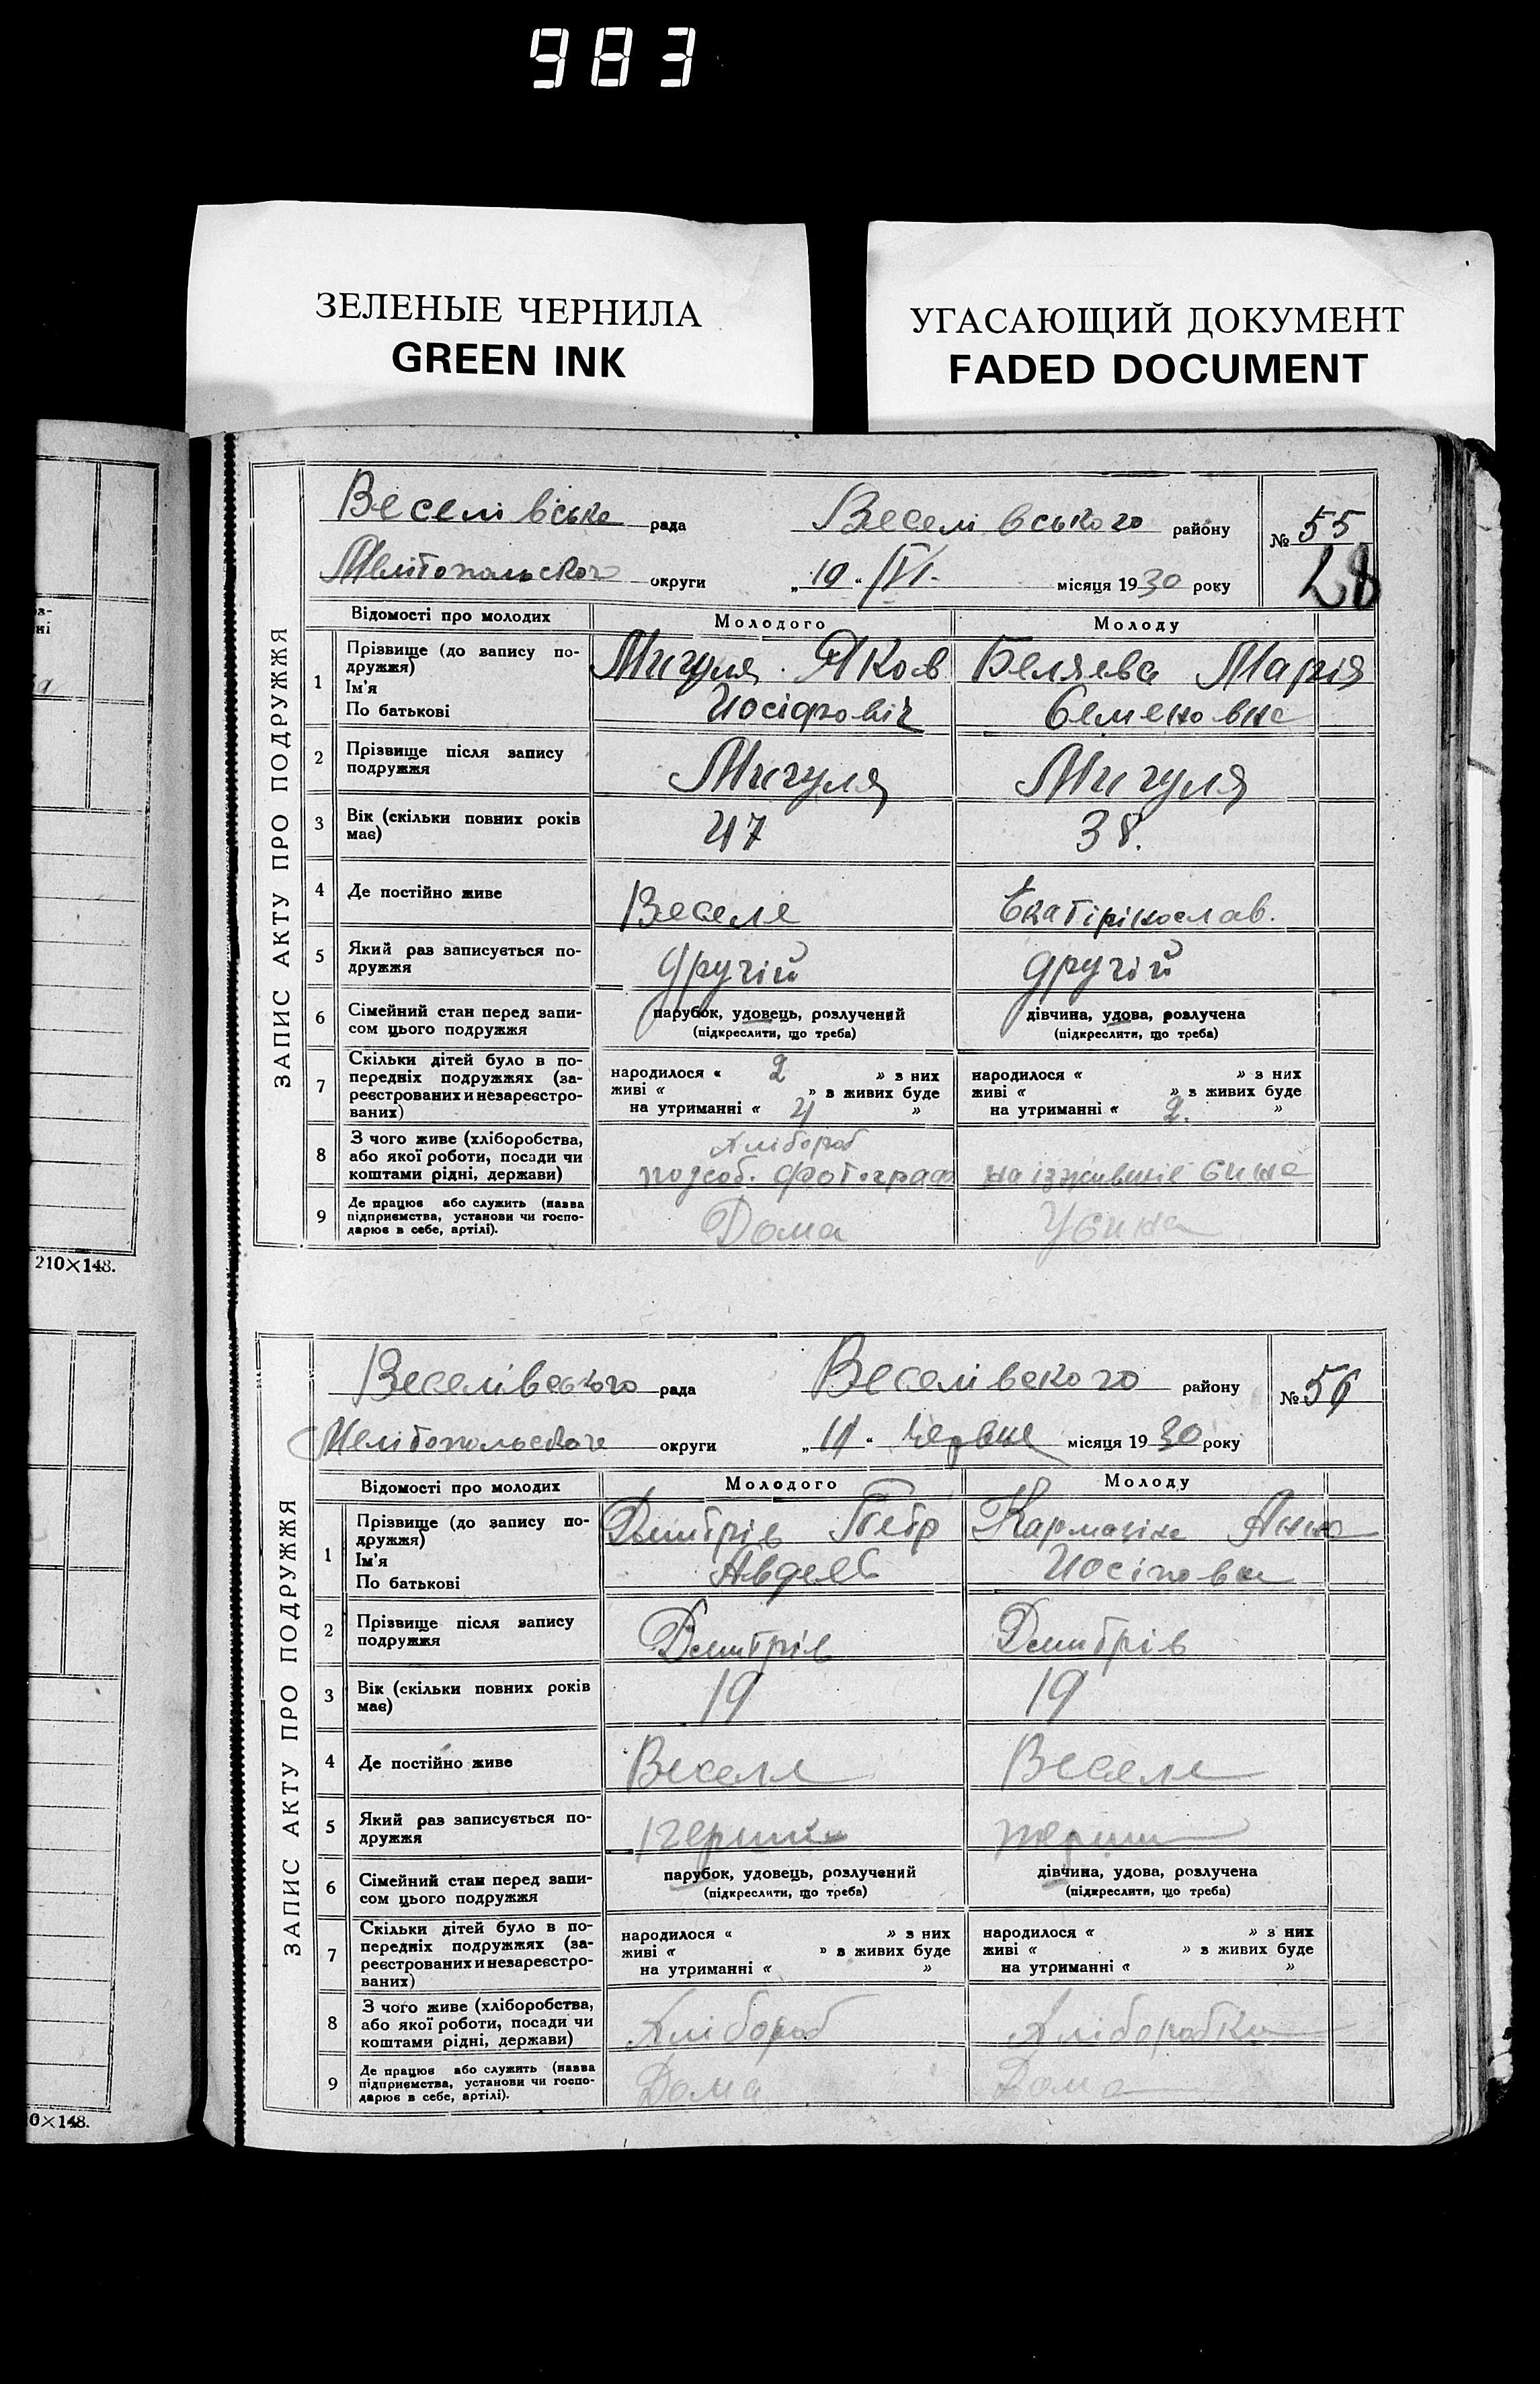 983
ЗЕЛЕНЫЕ ЧЕРНИЛА
GREEN INK
УГАСАЮЩИЙ ДОКУМЕНТ
FADED DOCUMENT
210×148.
0×148.
ЗАПИС АКТУ ПРО ПОДРУЖЖЯ
Веселівське рада Веселівського району № 55
Мелітопольского округи „10“ VI. місяця 1930 року 28
Відомості про молодих Молодого Молоду
1 Прізвище (до запису по-дружжя) Мигуля Яков Беляева Марія
Ім'я
По батькові Иосіфовіч Семеновна
2 Прізвище після запису подружжя Мигуля Мигуля
3 Вік (скільки повних років має) 47 38.
4 Де постійно живе Веселе Екатірінослав.
5 Який раз записується по-дружжя другій другій
6 Сімейний стан перед запи-сом цього подружжя парубок, удовець, розлучений дівчина, удова, розлучена
(підкреслити, що треба) (підкреслити, що треба)
7 Скільки дітей було в по-передніх подружжях (за-реєстрованих и незареєстро-ваних)
народилося « 2 » з них народилося « » з них
живі « » в живих буде живі « » в живих буде
на утриманні « 4 » на утриманні « 2. »
8 З чого живе (хліборобства, або якої роботи, посади чи коштами рідні, держави)
Хлібороб
подсоб. фотограф на сина
9 Де працює або служить (назва підприємства, установи чи госпо-дарює в себе, артілі). Дома У сина
ЗАПИС АКТУ ПРО ПОДРУЖЖЯ
Веселівського рада Веселівского району № 56
Мелітопольского округи „11“ червне місяця 1930 року
Відомості про молодих Молодого Молоду
1 Прізвище (до запису по-дружжя) Дмитрів Петр Кармазіна Анна
Ім'я
По батькові Авдеев Иосіповна
2 Прізвище після запису подружжя Дмитрів Дмитрів
3 Вік (скільки повних років має) 19 19
4 Де постійно живе Веселе Веселе
5 Який раз записується по-дружжя
6 Сімейний стан перед запи-сом цього подружжя парубок, удовець, розлучений дівчина, удова, розлучена
(підкреслити, що треба) (підкреслити, що треба)
7 Скільки дітей було в по-передніх подружжях (за-реєстрованих и незареєстро-ваних)
народилося « » з них народилося « » з них
живі « » в живих буде живі « » в живих буде
на утриманні « » на утриманні « »
8 З чого живе (хліборобства, або якої роботи, посади чи коштами рідні, держави) Хлібороб Хліборобка
9 Де працює або служить (назва підприємства, установи чи госпо-дарює в себе, артілі). Дома Дома